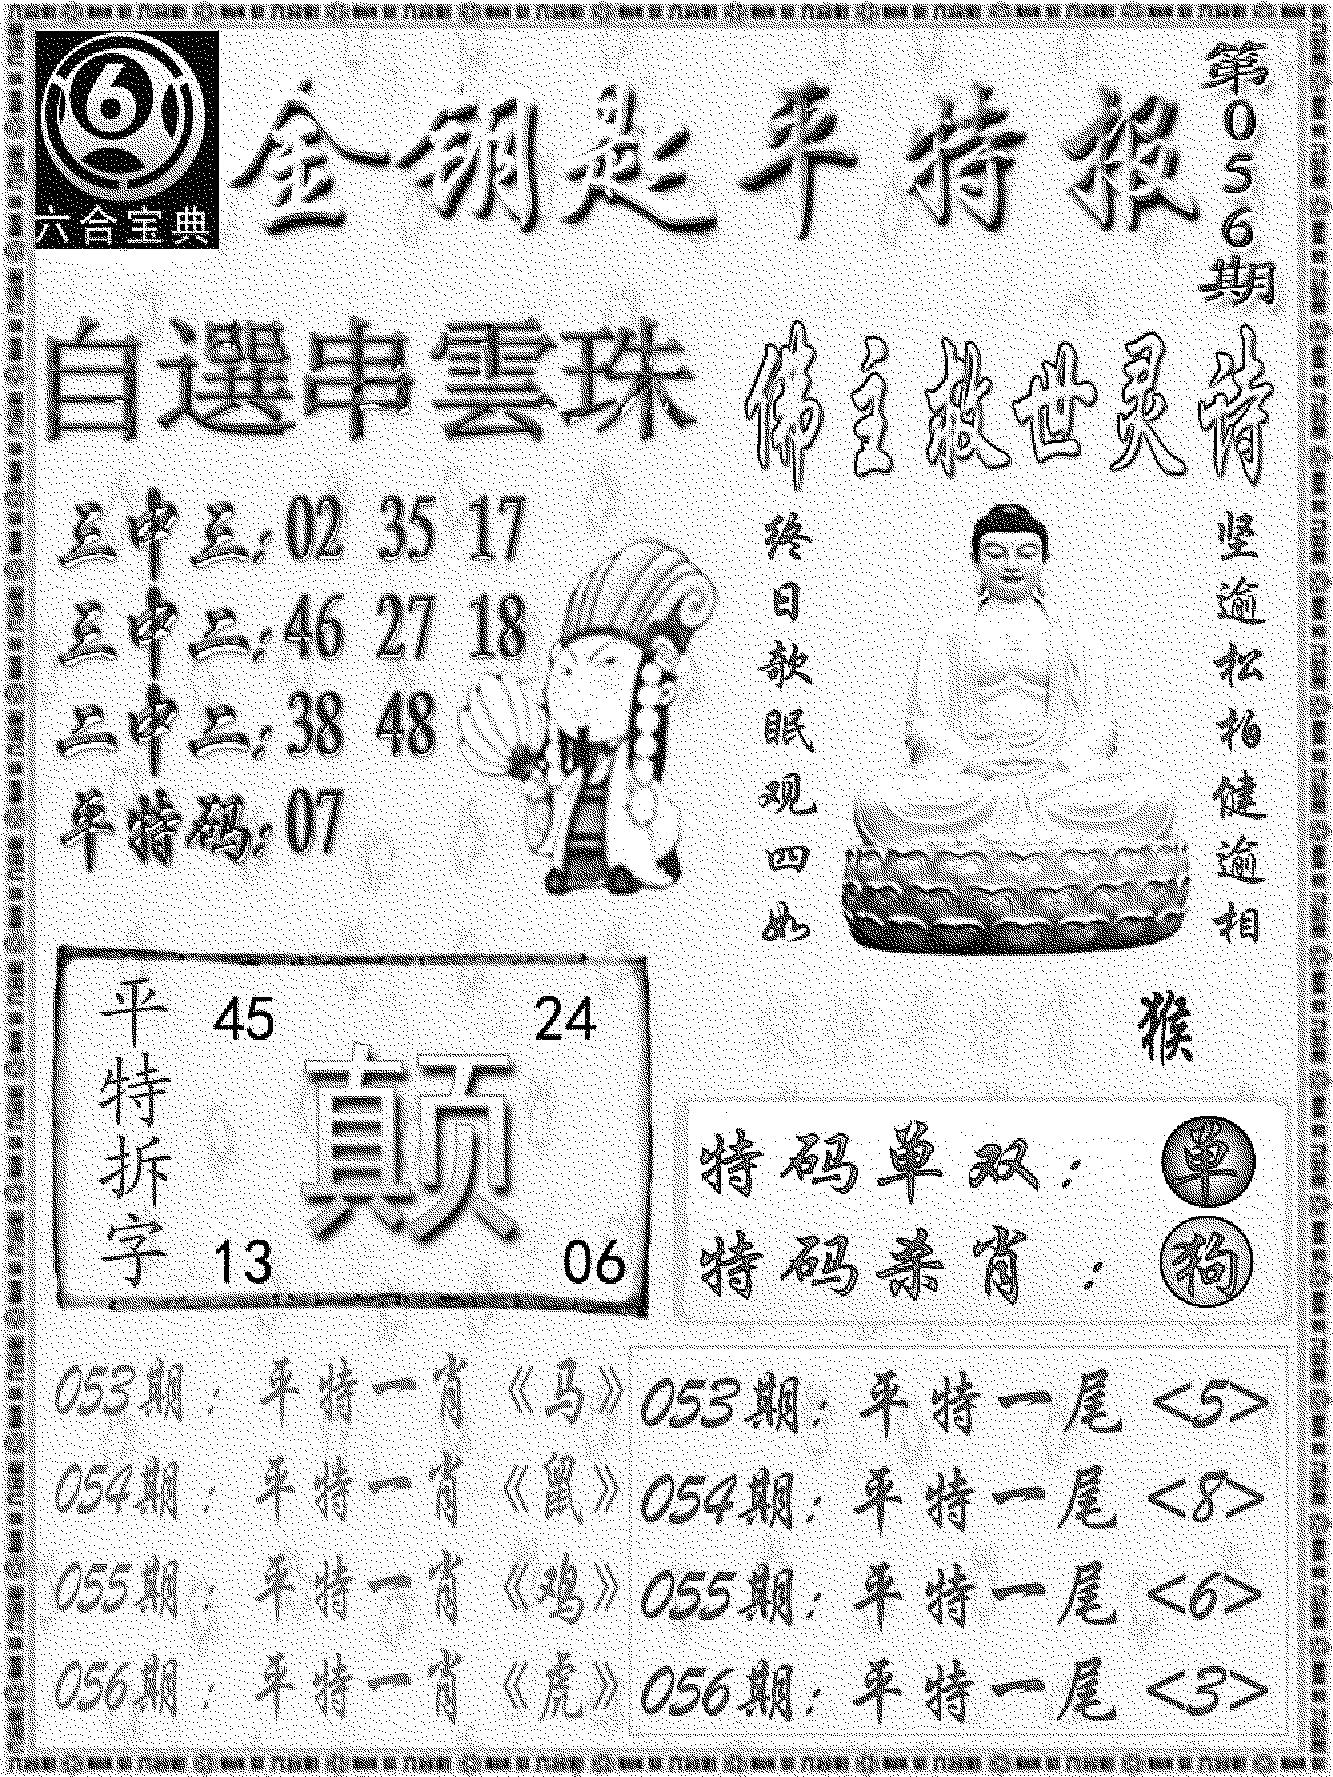 6
六合宝典
金钥匙平特报
第056期
自選串雲珠
三中三:02 35 17
三中二:46 27 18
二中二:38 48
平特码:07
佛主救世灵诗
终日欹眠观四如
坚逾松柏健逾相
猴
平特拆字
45 24
颠
13 06
特码单双:单
特码杀肖:狗
053期:平特一肖《马》
054期:平特一肖《鼠》
055期:平特一肖《鸡》
056期:平特一肖《虎》
053期:平特一尾<5>
054期:平特一尾<8>
055期:平特一尾<6>
056期:平特一尾<3>